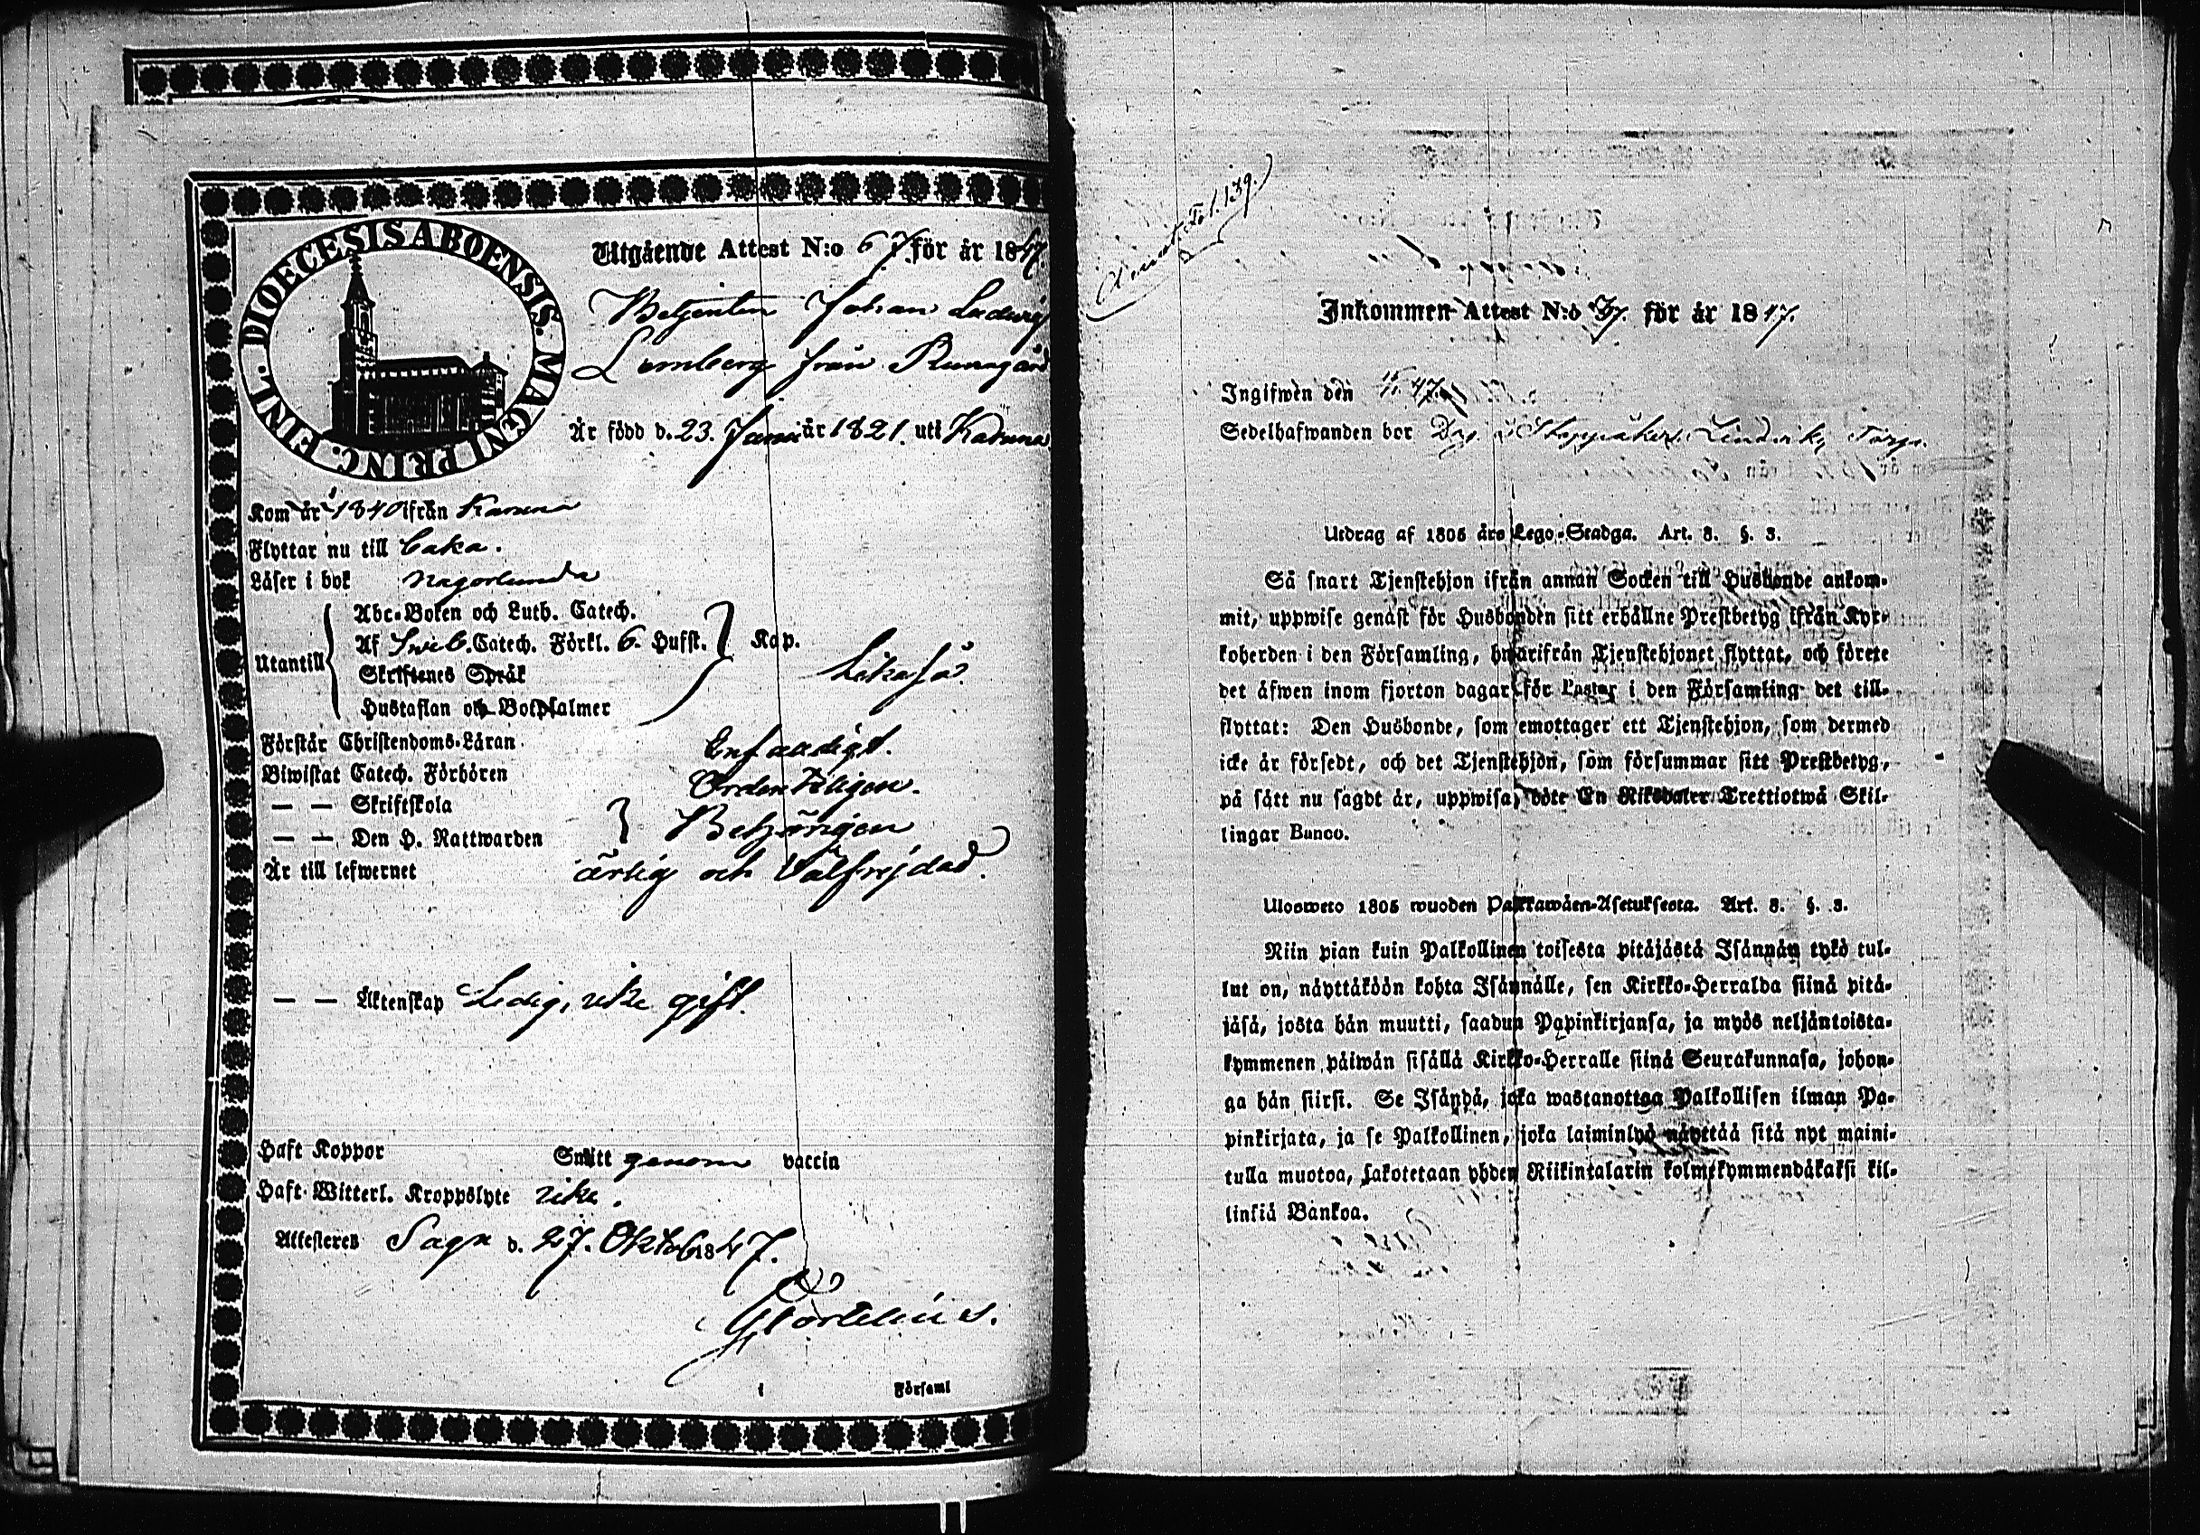 DIOECESIS ABOENSIS. MAGNI PRINC. FINL.
Utgående Attest N:o 67 för år 1847.
Betjenten Johan Ludvig
Lemberg från Runagård
Är född d. 23. Janu år 1821. uti Karuna
Kom år 1840 ifrån Karuna
Flyttar nu till
Läser i bok någorlunda
Utantill
Abc-Boken och Luth. Catech.
Af Sveb. Catech. Förkl. 6. Hufst. Kap.
Skriftenes Språk
Hustaflan och Botpsalmer
Likaså.
Förstår Christendoms-Läran Enfaldigt.
Biwistat Catech. Förhören Ordentligen.
— — Skriftskola
— — Den H. Nattwarden
Är till lefwernet ärlig och Välfrejdad.
— — Äktenskap Ledig, icke gift.
Haft Koppor Smitt genom vaccin
Haft Witterl. Kroppslyte icke.
Attesteres Sagu d. 27. Oktob 1847.
i Församl
Fol. 139.
Inkommen Attest N:o 37. för år 1847.
Ingifwen den
Sedelhafwanden bor
Utdrag af 1805 års Lego-Stadga. Art. 8. §. 3.
Så snart Tjenstehjon ifrån annan Socken till Husbonde ankom-
mit, uppwise genast för Husbonden sitt erhållne Prestbetyg ifrån Kyr-
koherden i den Församling, hwarifrån Tjenstehjonet flyttat, och förete
det äfwen inom fjorton dagar för Pastor i den Församling det till-
flyttat: Den Husbonde, som emottager ett Tjenstehjon, som dermed
icke är försedt, och det Tjenstehjon, som försummar sitt Prestbetyg,
på sätt nu sagdt är, uppwisa, böte En Riksdaler Trettiotwå Skil-
lingar Banco.
Uloswето 1805 wuoden Palkkawäen-Asetuksesta. Art. 8. §. 3.
Niin pian kuin Palkollinen toisesta pitäjästä Isännän tykö tul-
lut on, näyttäköön kohta Isännälle, sen Kirkko-Herralda siinä pitä-
jäsä, josta hän muutti, saadun Papinkirjansa, ja myös neljäntoista-
kymmenen päiwän sisällä Kirkko-Herralle siinä Seurakunnasa, johon-
ga hän siirsi. Se Isändä, joka wastanottaa Palkollisen ilman Pa-
pinkirjata, ja se Palkollinen, joka laiminlyö näyttää sitä nyt maini-
tulla muotoa, sakotetaan yhden Riikintalarin kolmekymmendäkaksi kil-
linkiä Bankoa.